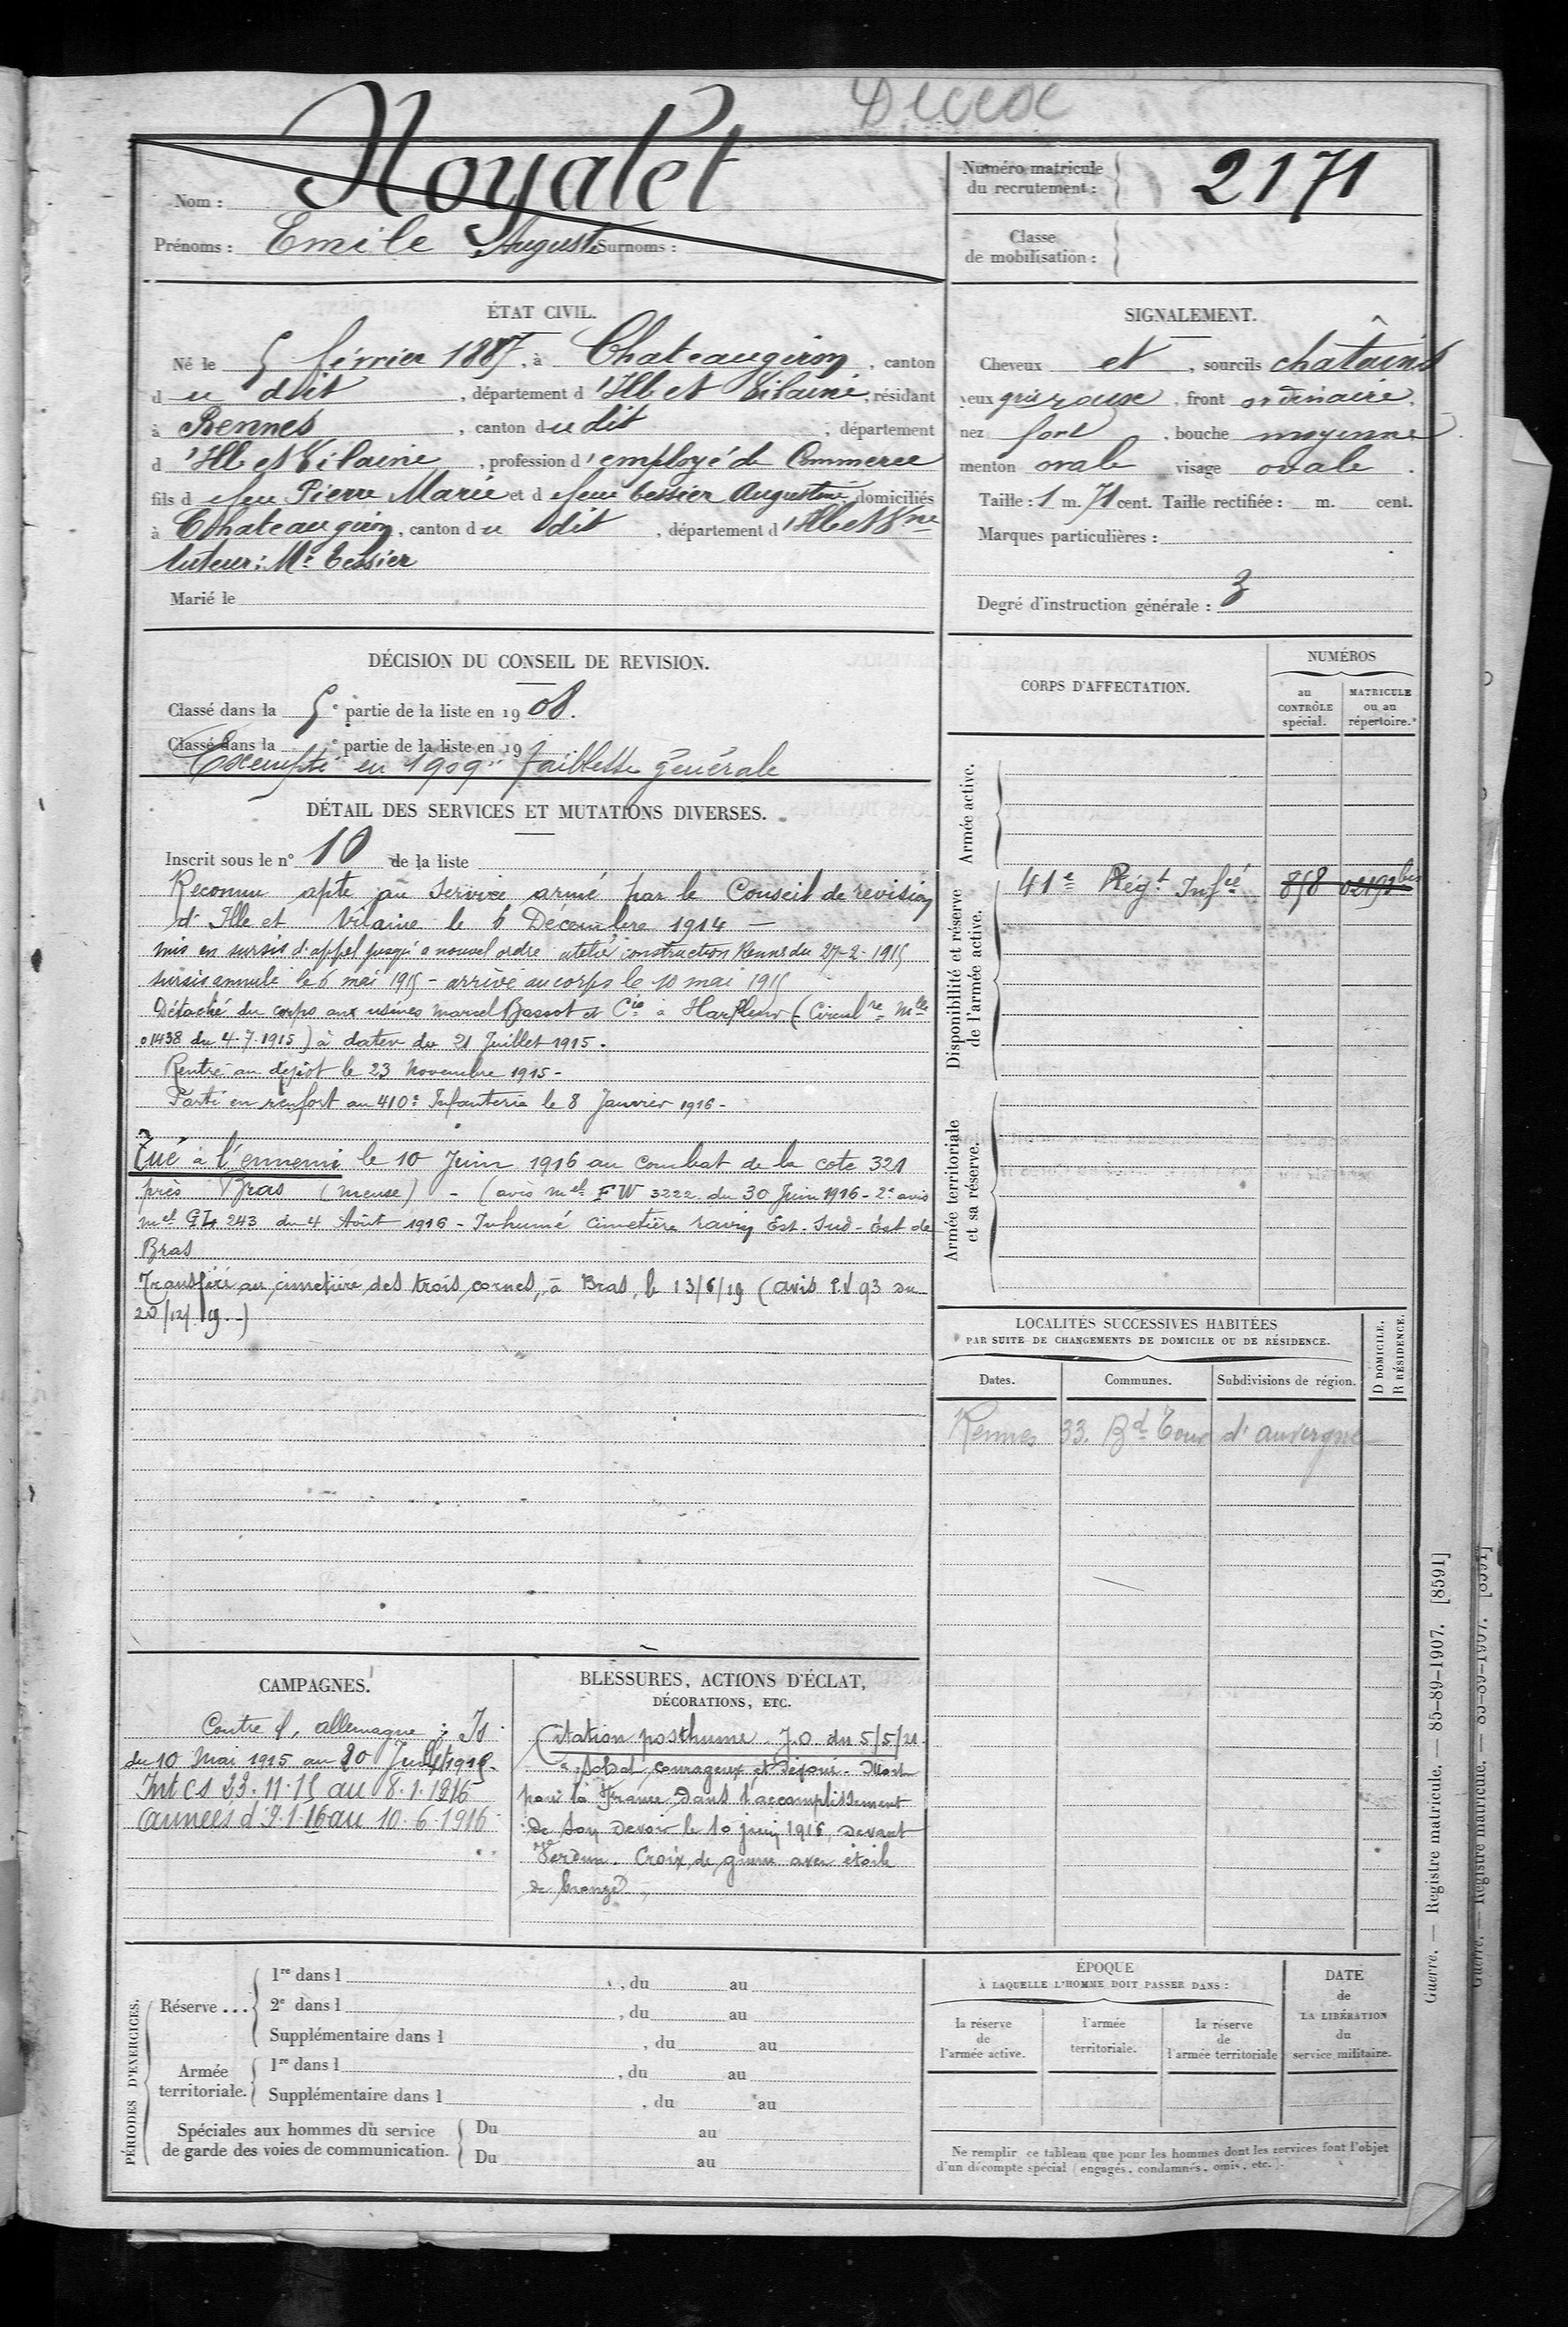 Décédé
Nom : Noyalet
Prénoms : Emile Auguste Surnoms :
Numéro matricule
du recrutement :
2171
Classe
de mobilisation :
ÉTAT CIVIL.
Né le 5 février 1887, à Chateaugiron, canton
du dit, département d'Ille et Vilaine, résidant
à Rennes, canton du dit, département
d'Ille et Vilaine, profession d'employé de Commerce
fils d feu Pierre Marie et d feue Tessier Augustine, domiciliés
à Chateaugiron, canton du dit, département d'Ille et Vne
tuteur : Mr Tessier
Marié le
SIGNALEMENT.
Cheveux et, sourcils châtains
yeux gris roux, front ordinaire,
nez fort, bouche moyenne
menton ovale visage ovale.
Taille : 1 m. 71 cent. Taille rectifiée : m. cent.
Marques particulières :
Degré d'instruction générale : 3
DÉCISION DU CONSEIL DE REVISION.
Classé dans la 5e partie de la liste en 1908.
Classé dans la e partie de la liste en 19
Exempté en 1909 " faiblesse générale
DÉTAIL DES SERVICES ET MUTATIONS DIVERSES.
Inscrit sous le n° 10 de la liste
Reconnu apte au Service armé par le Conseil de revision
d'Ille et Vilaine le 6 Decembre 1914 —
mis en sursis d'appel jusqu'a nouvel ordre atelier construction Rennes du 27-2-1915
sursis annulé le 6 mai 1915 - arrivé au corps le 10 mai 1915
Détaché du corps aux usines Marcel Bassot et Cie à Harfleur (Circulre Mlle
01438 du 4.7.1915) à dater du 21 Juillet 1915.
Rentré au dépôt le 23 Novembre 1915 -
Parti en renfort au 410e Infanterie le 8 Janvier 1916 -
Tué à l'ennemi le 10 Juin 1916 au combat de la cote 321
près Bras (Meuse) - (avis mel FW 3222 du 30 Juin 1916 - 2e avis
mel GL 243 du 4 Août 1916 - Inhumé cimetière ravin Est-Sud-Est de
Bras
Transféré au cimetière des trois cornes, à Bras, le 13/6/19 (avis P.V 93 du
20/12/19.-)
CORPS D'AFFECTATION.
NUMÉROS
au
CONTRÔLE
spécial.
MATRICULE
ou au
répertoire.
Armée active.
Disponibilité et réserve
de l'armée active.
41e Régt Infie 858 02191 bis
Armée territoriale
et sa réserve.
LOCALITÉS SUCCESSIVES HABITÉES
PAR SUITE DE CHANGEMENTS DE DOMICILE OU DE RÉSIDENCE.
D DOMICILE.
R RÉSIDENCE.
Dates. Communes. Subdivisions de région.
Rennes 33. Bd Tour d'auvergne
CAMPAGNES.
Contre l'allemagne :
du 10 Mai 1915 au 20 Juillet 1915.
Int cs 23.11.15 au 8.1.1916
Armées d 9.1.16 au 10.6.1916
BLESSURES, ACTIONS D'ÉCLAT,
DÉCORATIONS, ETC.
Citation posthume. J.O. du 5/5/21
"Soldat courageux et dévoué. Mort
pour la France dans l'accomplissement
de son devoir le 10 juin 1916, devant
Verdun. Croix de guerre avec étoile
de bronze
PÉRIODES D'EXERCICES.
Réserve ...
1re dans l , du au
2e dans l , du au
Supplémentaire dans l , du au
Armée
territoriale.
1re dans l , du au
Supplémentaire dans l , du au
Spéciales aux hommes du service
de garde des voies de communication.
Du au
Du au
ÉPOQUE
À LAQUELLE L'HOMME DOIT PASSER DANS :
la réserve
de
l'armée active.
l'armée
territoriale.
la réserve
de
l'armée territoriale
DATE
de
LA LIBÉRATION
du
service militaire.
Ne remplir ce tableau que pour les hommes dont les services font l'objet
d'un décompte spécial (engagés, condamnés, omis, etc.).
Guerre. — Registre matricule. — 85-89-1907. [8591]
Guerre. — Registre matricule. — 85-89-1907. [8591]